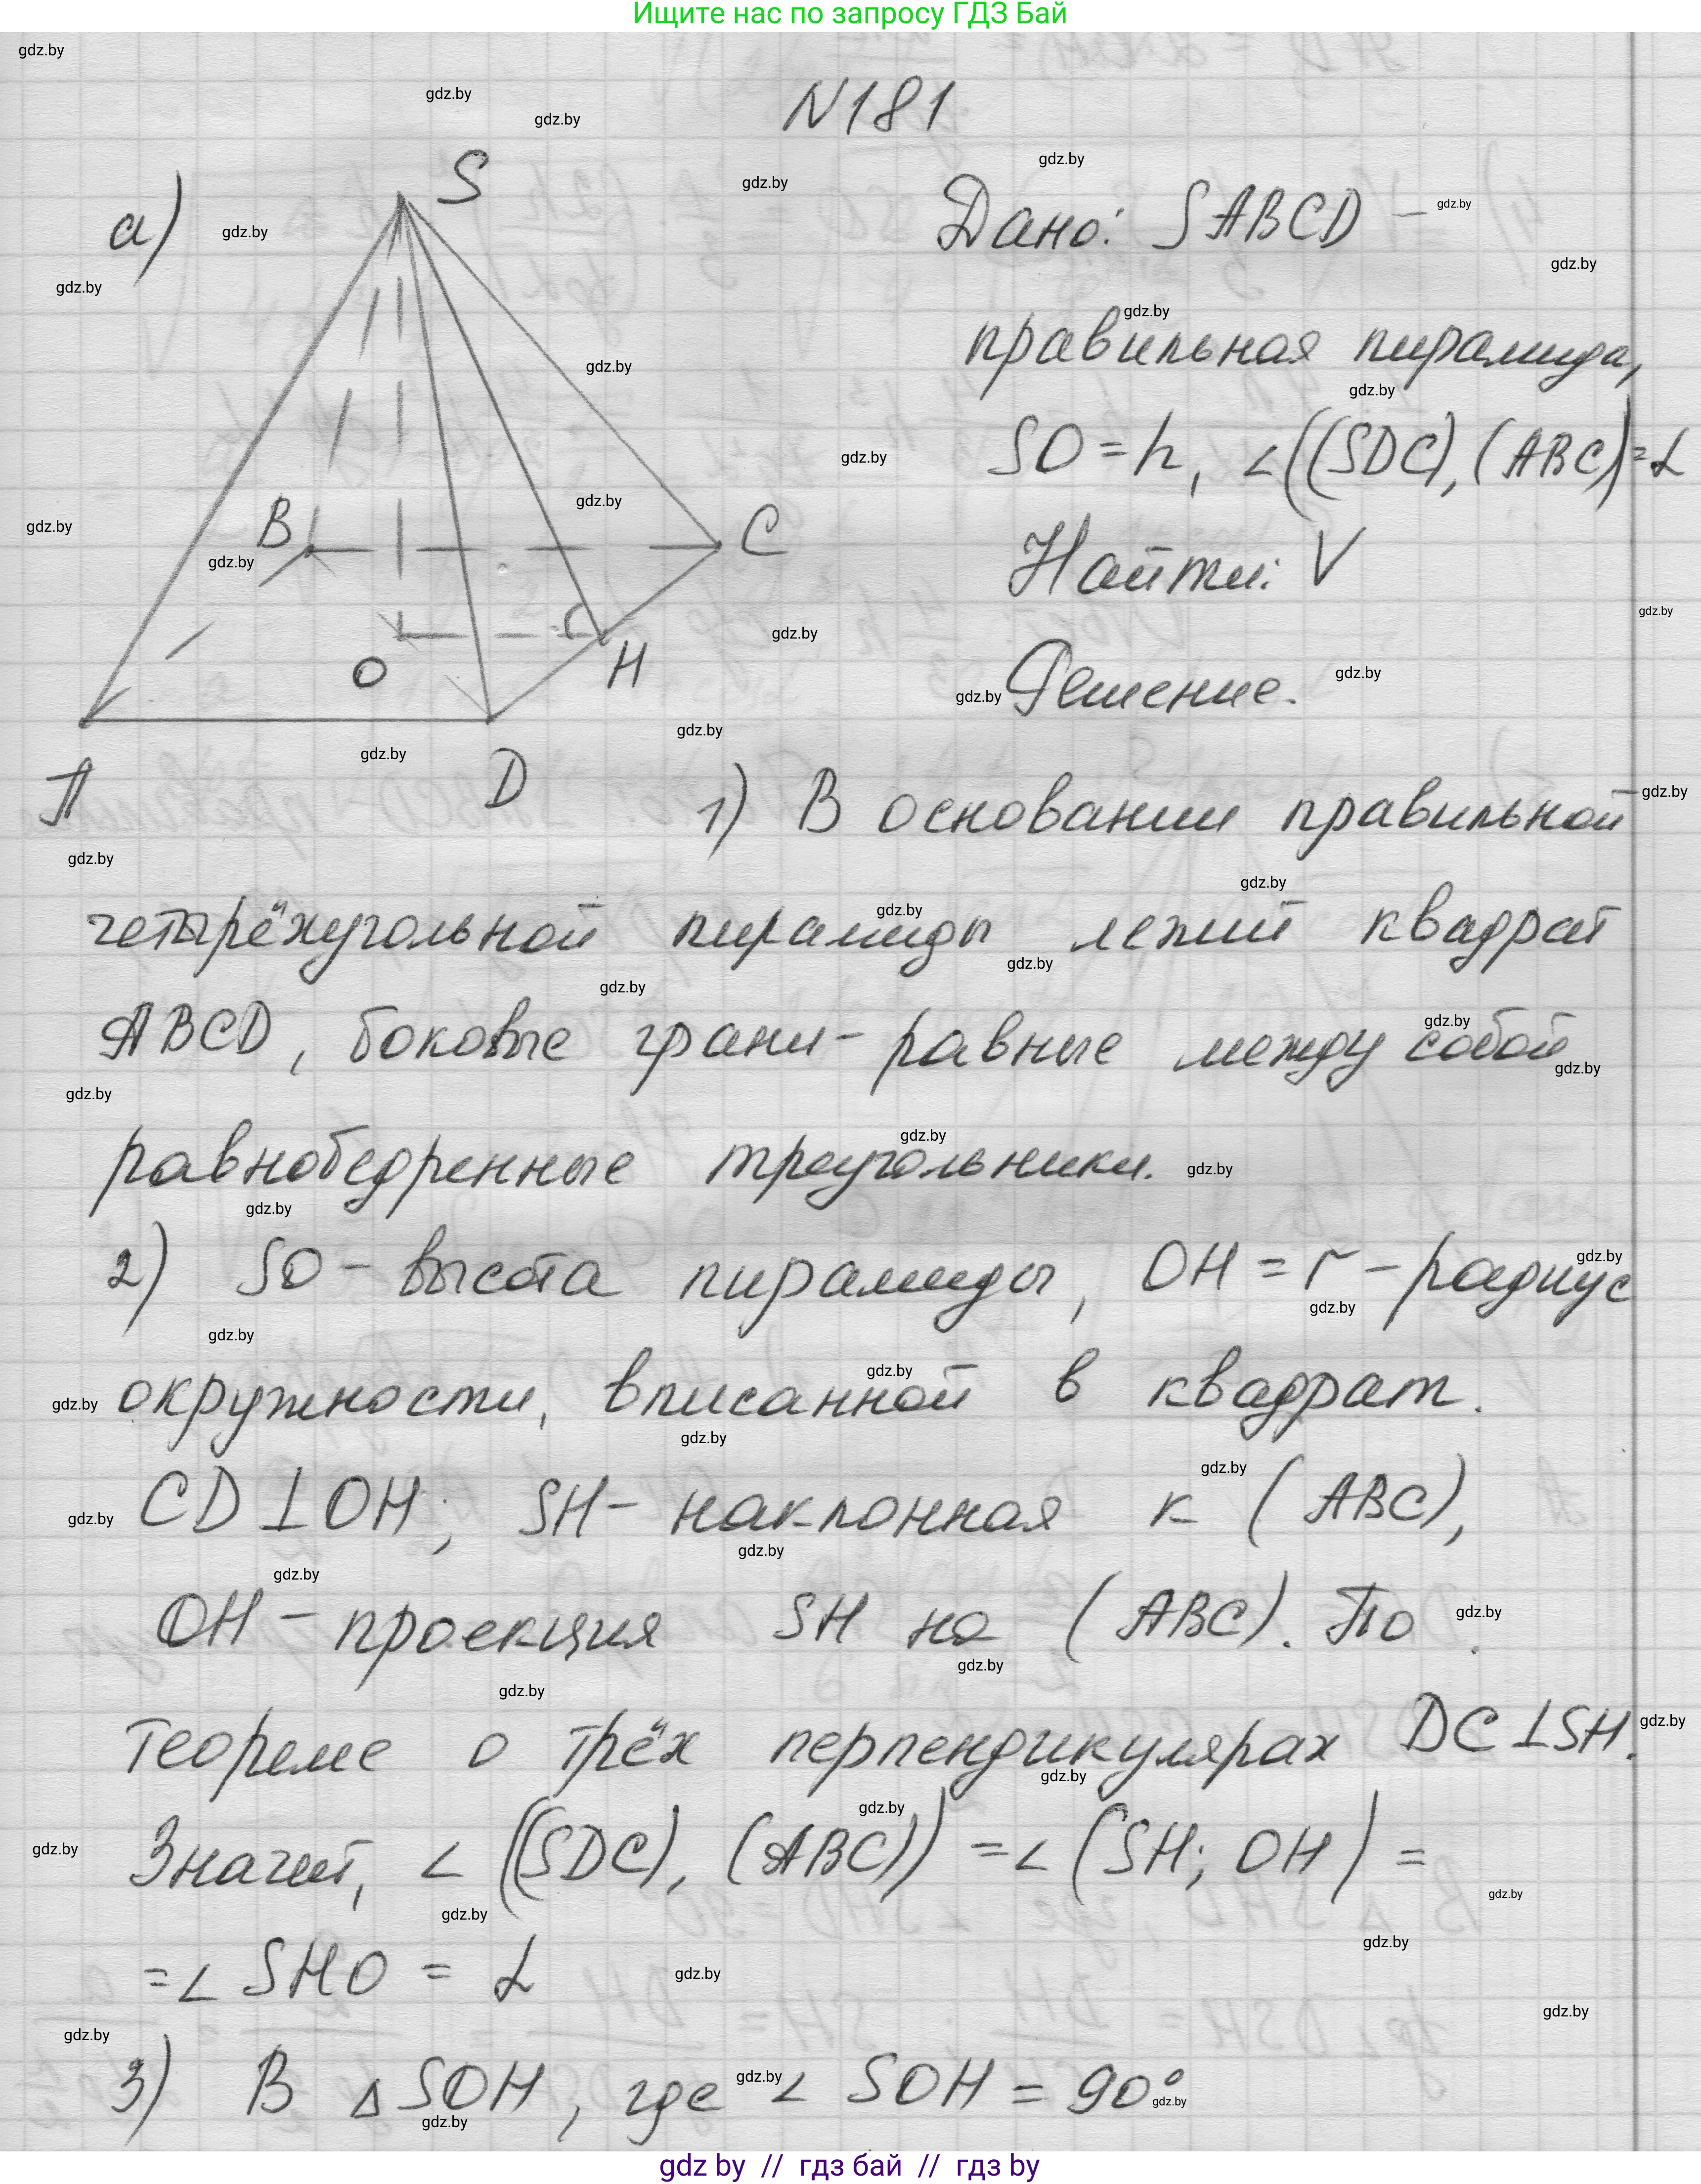 Ищите нас по запросу ГДЗ Бай
N181
а)
S
B
C
O
H
A
D
Дано: SABCD –
правильная пирамида,
SO = h, ∠((SDC), (ABC)) = α
Найти: V
Решение.
1) В основании правильной
четырёхугольной пирамиды лежит квадрат
ABCD, боковые грани – равные между собой
равнобедренные треугольники.
2) SO – высота пирамиды, OH = r – радиус
окружности, вписанной в квадрат.
CD ⊥ OH; SH – наклонная к (ABC),
OH – проекция SH на (ABC). По
теореме о трёх перпендикулярах DC ⊥ SH.
Значит, ∠((SDC), (ABC)) = ∠(SH; OH) =
= ∠SHO = α
3) В ΔSOH, где ∠SOH = 90°
gdz by // гдз бай // гдз by